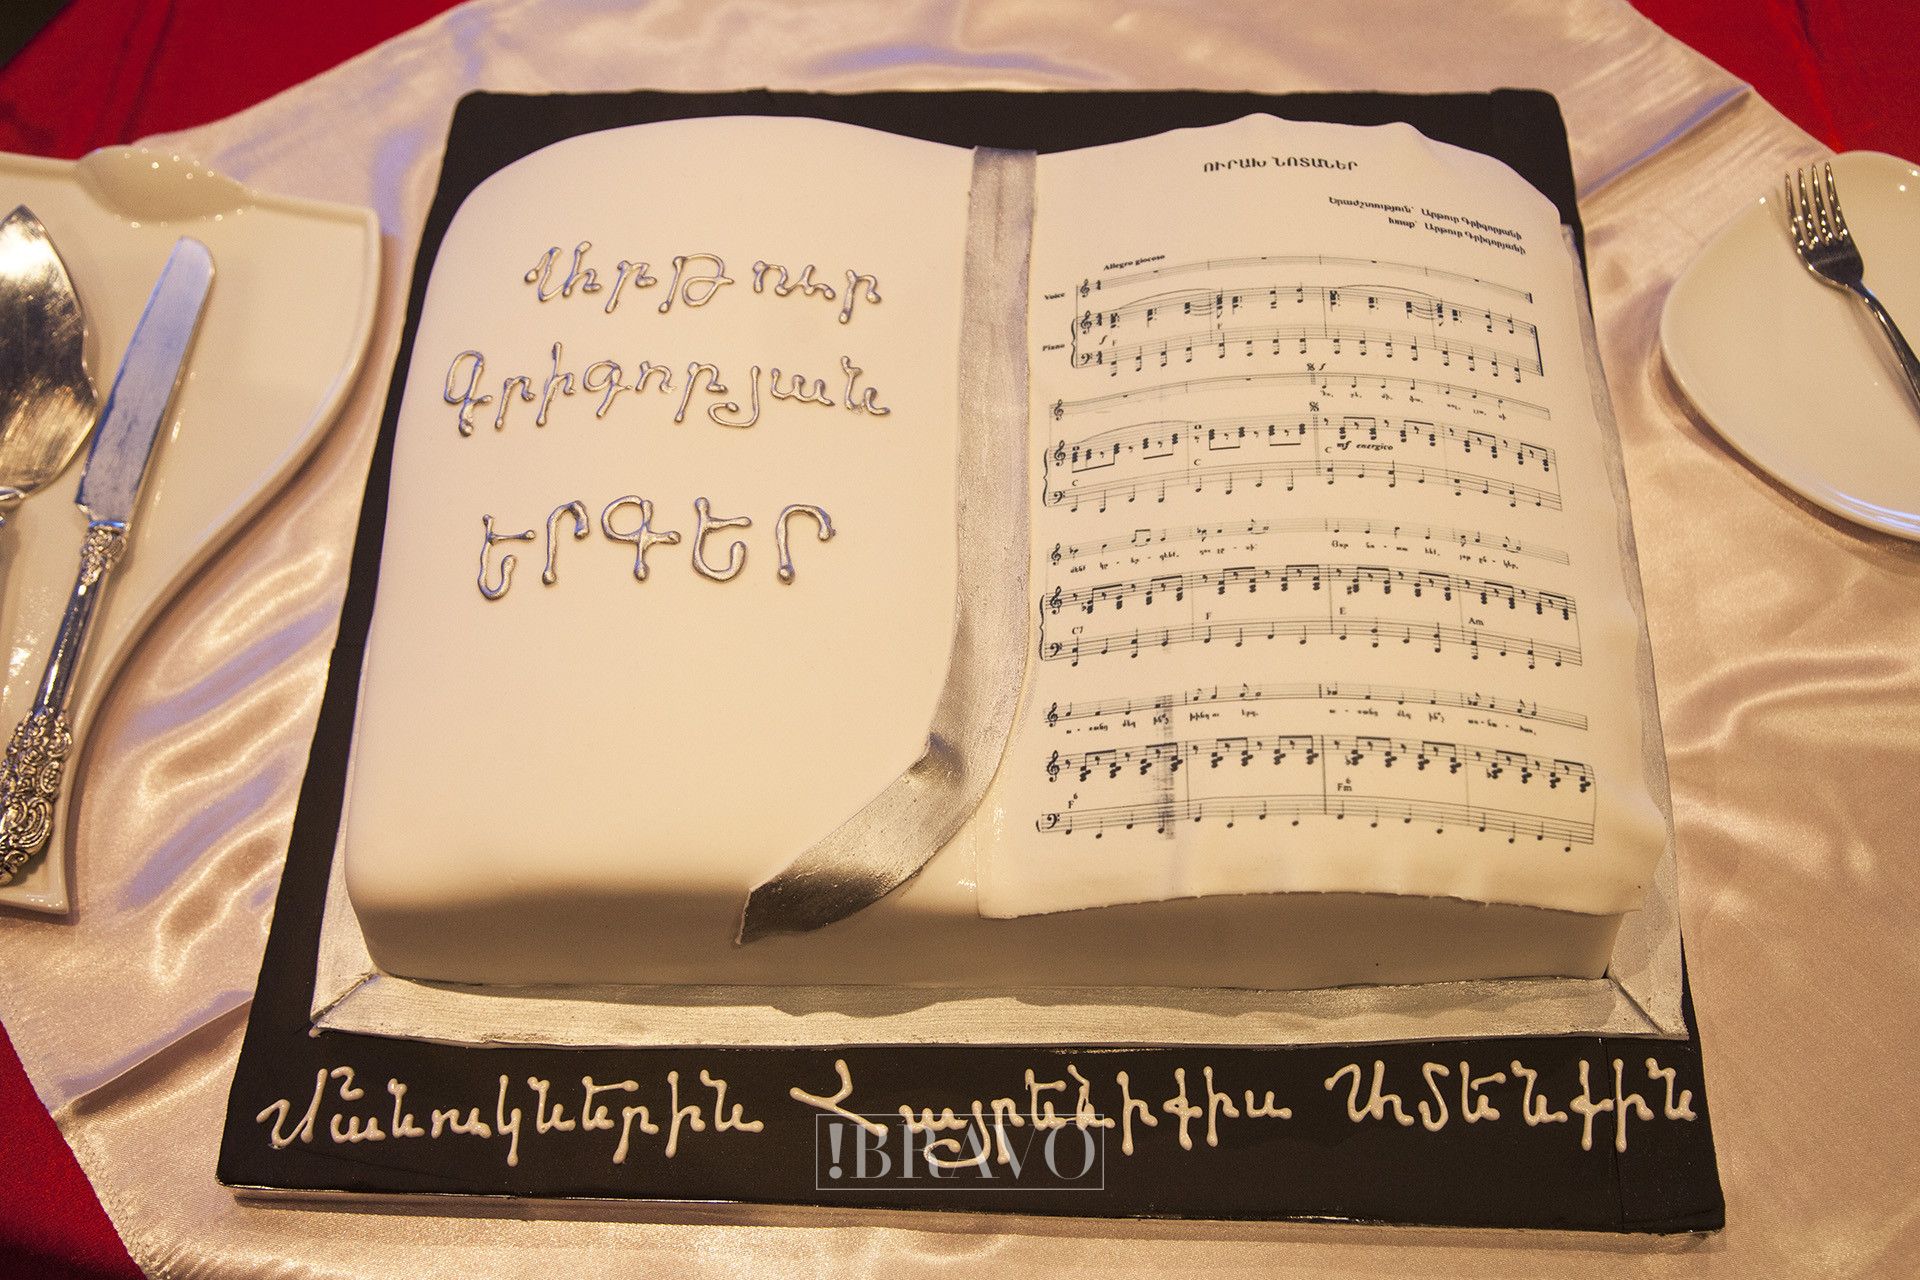 Արթուր
Գրիգորյան
ԵՐԳԵՐ
ՈՒՐԱԽ ՆՈՏԱՆԵՐ
Երաժշտություն՝ Արթուր Գրիգորյանի
Խոսք՝ Արթուր Գրիգորյանի
Allegro giocoso
Voice
Piano
f
F
f
mf energico
C
C
C
C7
F
E
Am
F6
Fm6
Մանուկներին Հայրենիքիս Ամենքին
!BRAVO